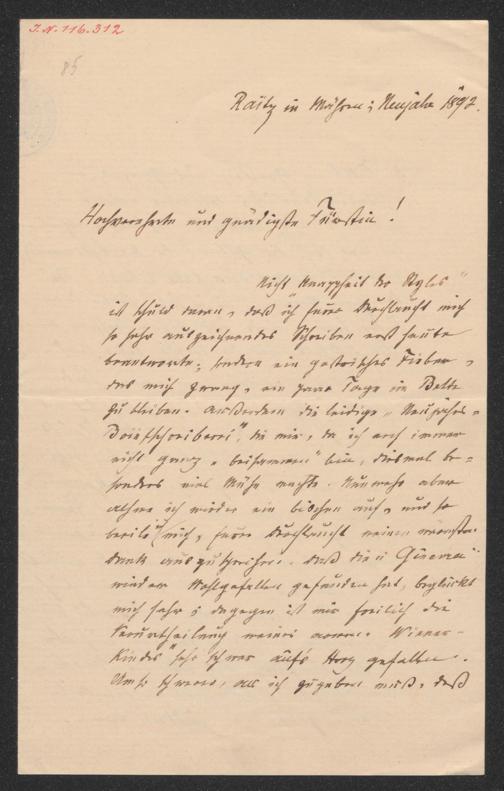 I.N. 116.312
85
Raitz in Mähren; Neujahr 1892.
Hochverehrte und gnädigste Fürstin!
Nicht „Knappheit des Styles"
ist schuld daran, daß ich Euer Durchlaucht mich
so sehr auszeichnendes Schreiben erst heute
beantworte; sondern ein gastrisches Fieber,
das mich zwang, ein paar Tage im Bette
zu bleiben. Außerdem die leidige „Neujahrs-
Briefschreiberei", die mir, da ich noch immer
nicht ganz „beisammen" bin, diesmal be-
sonders viel Mühe machte. Nunmehr aber
athme ich wieder ein bischen auf, und so
beeile ich mich, Euer Durchlaucht meinen wärmsten
Dank auszusprechen. Daß die „Ginevra"
wieder Wohlgefallen gefunden hat, beglückt
mich sehr; dagegen ist mir freilich die
Verurtheilung meines armen „Wiener-
Kindes" sehr schwer auf's Herz gefallen.
Um so schwerer, als ich zugeben muß, daß